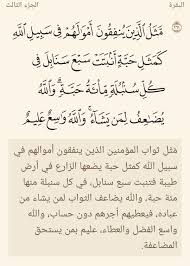 البقرة الجزء الثالث
مَّثَلُ ٱلَّذِينَ يُنفِقُونَ أَمْوَٰلَهُمْ فِى سَبِيلِ ٱللَّهِ
كَمَثَلِ حَبَّةٍ أَنۢبَتَتْ سَبْعَ سَنَابِلَ فِى
كُلِّ سُنۢبُلَةٍ مِّا۟ئَةُ حَبَّةٍ ۗ وَٱللَّهُ
يُضَـٰعِفُ لِمَن يَشَآءُ ۗ وَٱللَّهُ وَٰسِعٌ عَلِيمٌ
مَثل ثواب المؤمنين الذين ينفقون أموالهم في
سبيل الله كمثل حبة يضعها الزارع في أرض
طيبة فتنبت سبع سنابل، في كل سنبلة منها
مئة حبة، والله يضاعف الثواب لمن يشاء من
عباده، فيعطيهم أجرهم دون حساب، والله
واسع الفضل والعطاء، عليم بمن يستحق
المضاعفة.